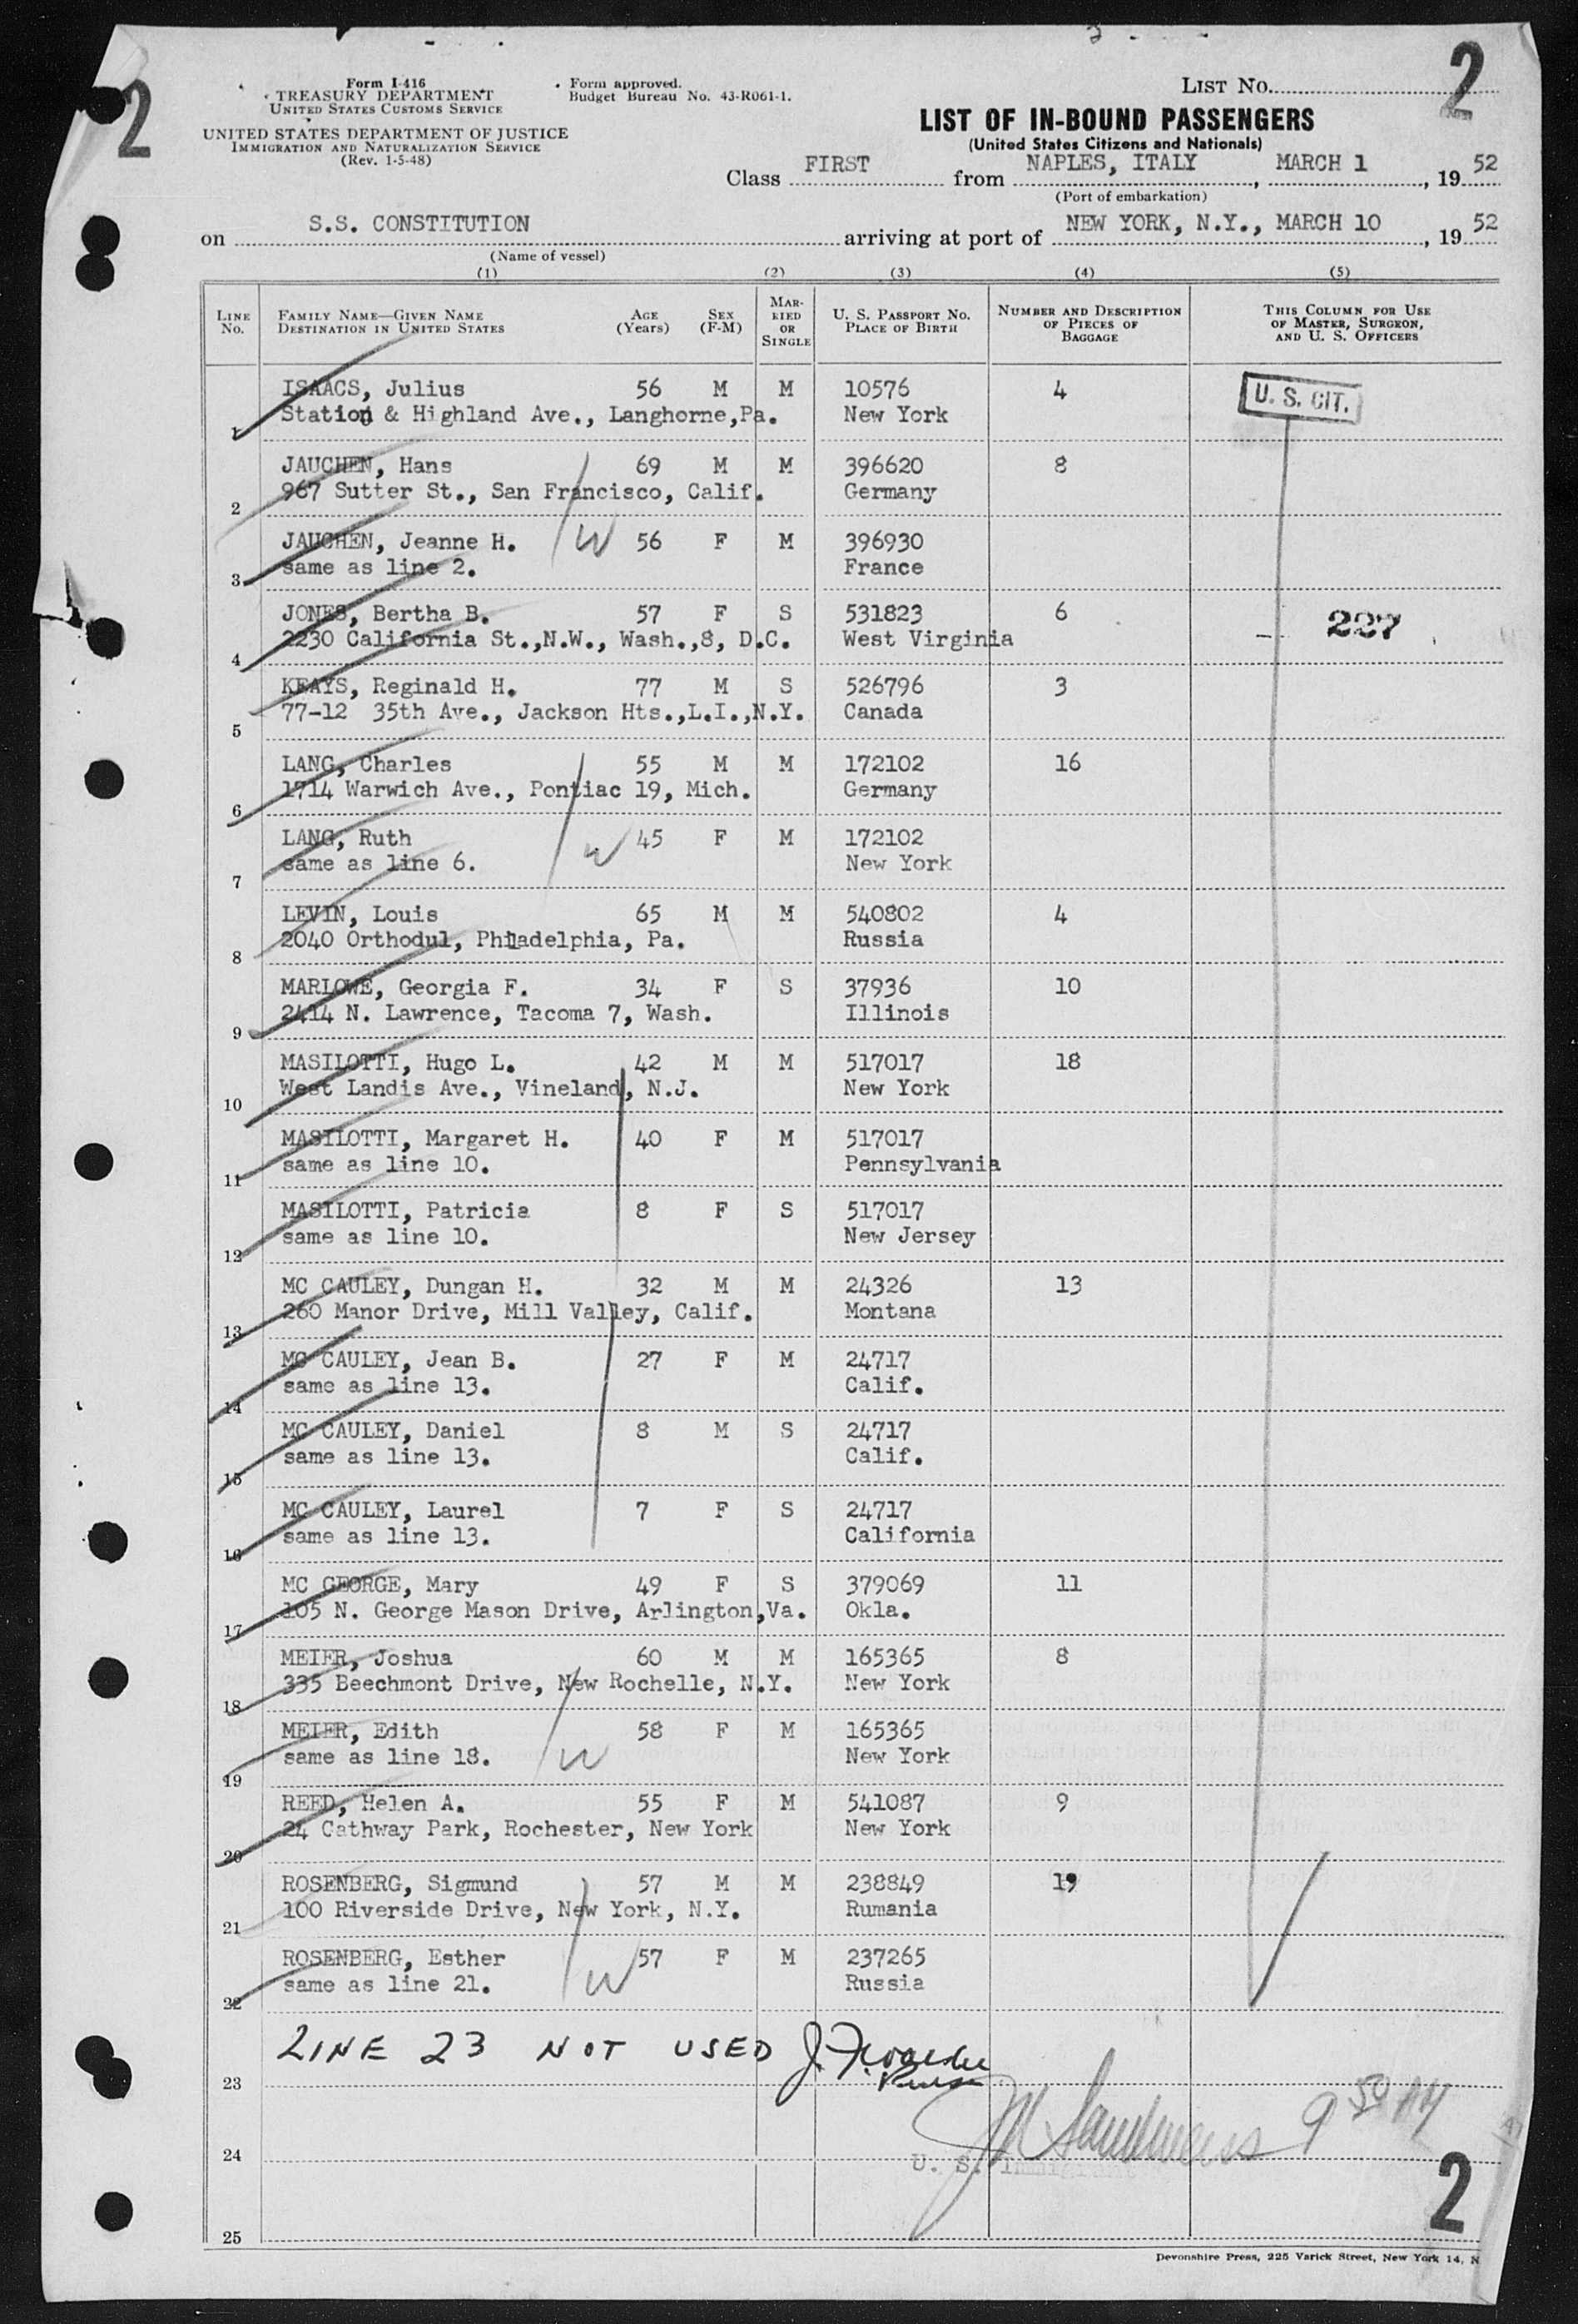 2
2
Form I-416
TREASURY DEPARTMENT
UNITED STATES CUSTOMS SERVICE
UNITED STATES DEPARTMENT OF JUSTICE
IMMIGRATION AND NATURALIZATION SERVICE
(Rev. 1-5-48)
Form approved.
Budget Bureau No. 43-R061-1.
LIST NO.
LIST OF IN-BOUND PASSENGERS
(United States Citizens and Nationals)
Class FIRST from NAPLES, ITALY, MARCH 1, 19 52
(Port of embarkation)
on S.S. CONSTITUTION arriving at port of NEW YORK, N.Y., MARCH 10, 19 52
(Name of vessel)
(1) (2) (3) (4) (5)
LINE NO. FAMILY NAME—GIVEN NAME DESTINATION IN UNITED STATES AGE (YEARS) SEX (F-M) MARRIED OR SINGLE U. S. PASSPORT NO. PLACE OF BIRTH NUMBER AND DESCRIPTION OF PIECES OF BAGGAGE THIS COLUMN FOR USE OF MASTER, SURGEON, AND U. S. OFFICERS
ISAACS, Julius 56 M M 10576 4 U. S. CIT.
1 Station & Highland Ave., Langhorne,Pa. New York
JAUCHEN, Hans 69 M M 396620 8
2 967 Sutter St., San Francisco, Calif. Germany
JAUCHEN, Jeanne H. W 56 F M 396930
3 same as line 2. France
JONES, Bertha B. 57 F S 531823 6 227
4 2230 California St.,N.W., Wash.,8, D.C. West Virginia
KEAYS, Reginald H. 77 M S 526796 3
5 77-12 35th Ave., Jackson Hts.,L.I.,N.Y. Canada
LANG, Charles 55 M M 172102 16
6 1714 Warwich Ave., Pontiac 19, Mich. Germany
LANG, Ruth W 45 F M 172102
7 same as line 6. New York
LEVIN, Louis 65 M M 540802 4
8 2040 Orthodul, Philadelphia, Pa. Russia
MARLOWE, Georgia F. 34 F S 37936 10
9 2414 N. Lawrence, Tacoma 7, Wash. Illinois
MASILOTTI, Hugo L. 42 M M 517017 18
10 West Landis Ave., Vineland, N.J. New York
MASILOTTI, Margaret H. 40 F M 517017
11 same as line 10. Pennsylvania
MASILOTTI, Patricia 8 F S 517017
12 same as line 10. New Jersey
MC CAULEY, Dungan H. 32 M M 24326 13
13 260 Manor Drive, Mill Valley, Calif. Montana
MC CAULEY, Jean B. 27 F M 24717
14 same as line 13. Calif.
MC CAULEY, Daniel 8 M S 24717
15 same as line 13. Calif.
MC CAULEY, Laurel 7 F S 24717
16 same as line 13. California
MC GEORGE, Mary 49 F S 379069 11
17 105 N. George Mason Drive, Arlington,Va. Okla.
MEIER, Joshua 60 M M 165365 8
18 335 Beechmont Drive, New Rochelle, N.Y. New York
MEIER, Edith 58 F M 165365
19 same as line 18. W New York
REED, Helen A. 55 F M 541087 9
20 24 Cathway Park, Rochester, New York New York
ROSENBERG, Sigmund 57 M M 238849 19
21 100 Riverside Drive, New York, N.Y. Rumania
ROSENBERG, Esther 57 F M 237265
22 same as line 21. W Russia
LINE 23 NOT USED
23
9 50 AM
24 U. S. Immigrant
2
25
Devonshire Press, 225 Varick Street, New York 14, N